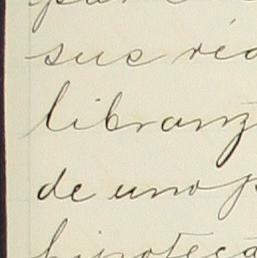 sus réd
libranz
de uno p
hipoteca